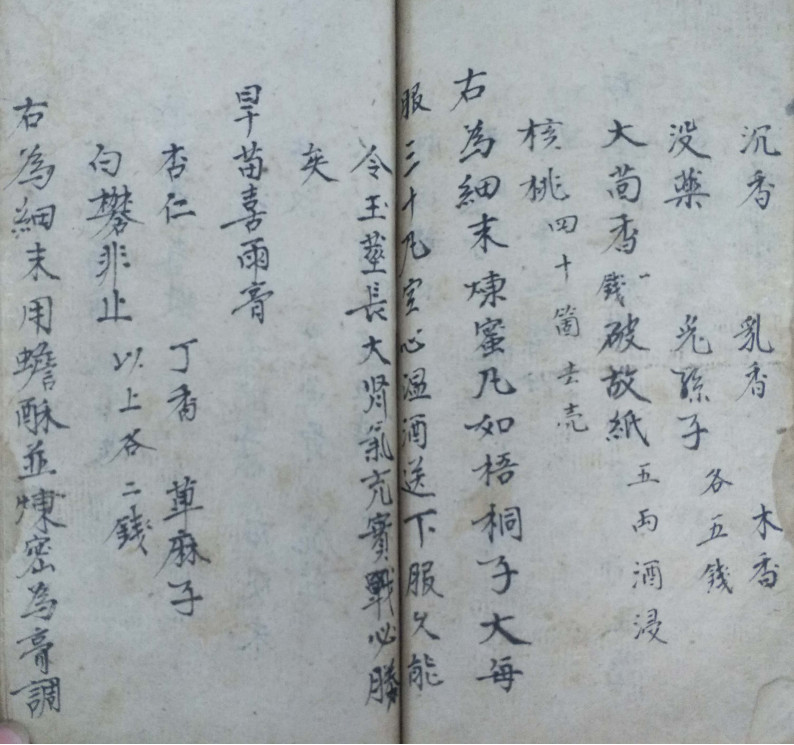 沉香　乳香　木香
没藥　兎孫子　各五錢
大茴香一錢　破故紙　五両酒浸
核桃四十箇去壳
右為細末煉蜜凡如梧桐子大每
服三十凡空心温酒送下服久能
令玉莖長大肾氣充實戰必勝
矣
旱苗喜雨膏
杏仁　丁香　萆麻子
白礬非止　以上各二錢
右為細末用蟾酥並煉密為膏調